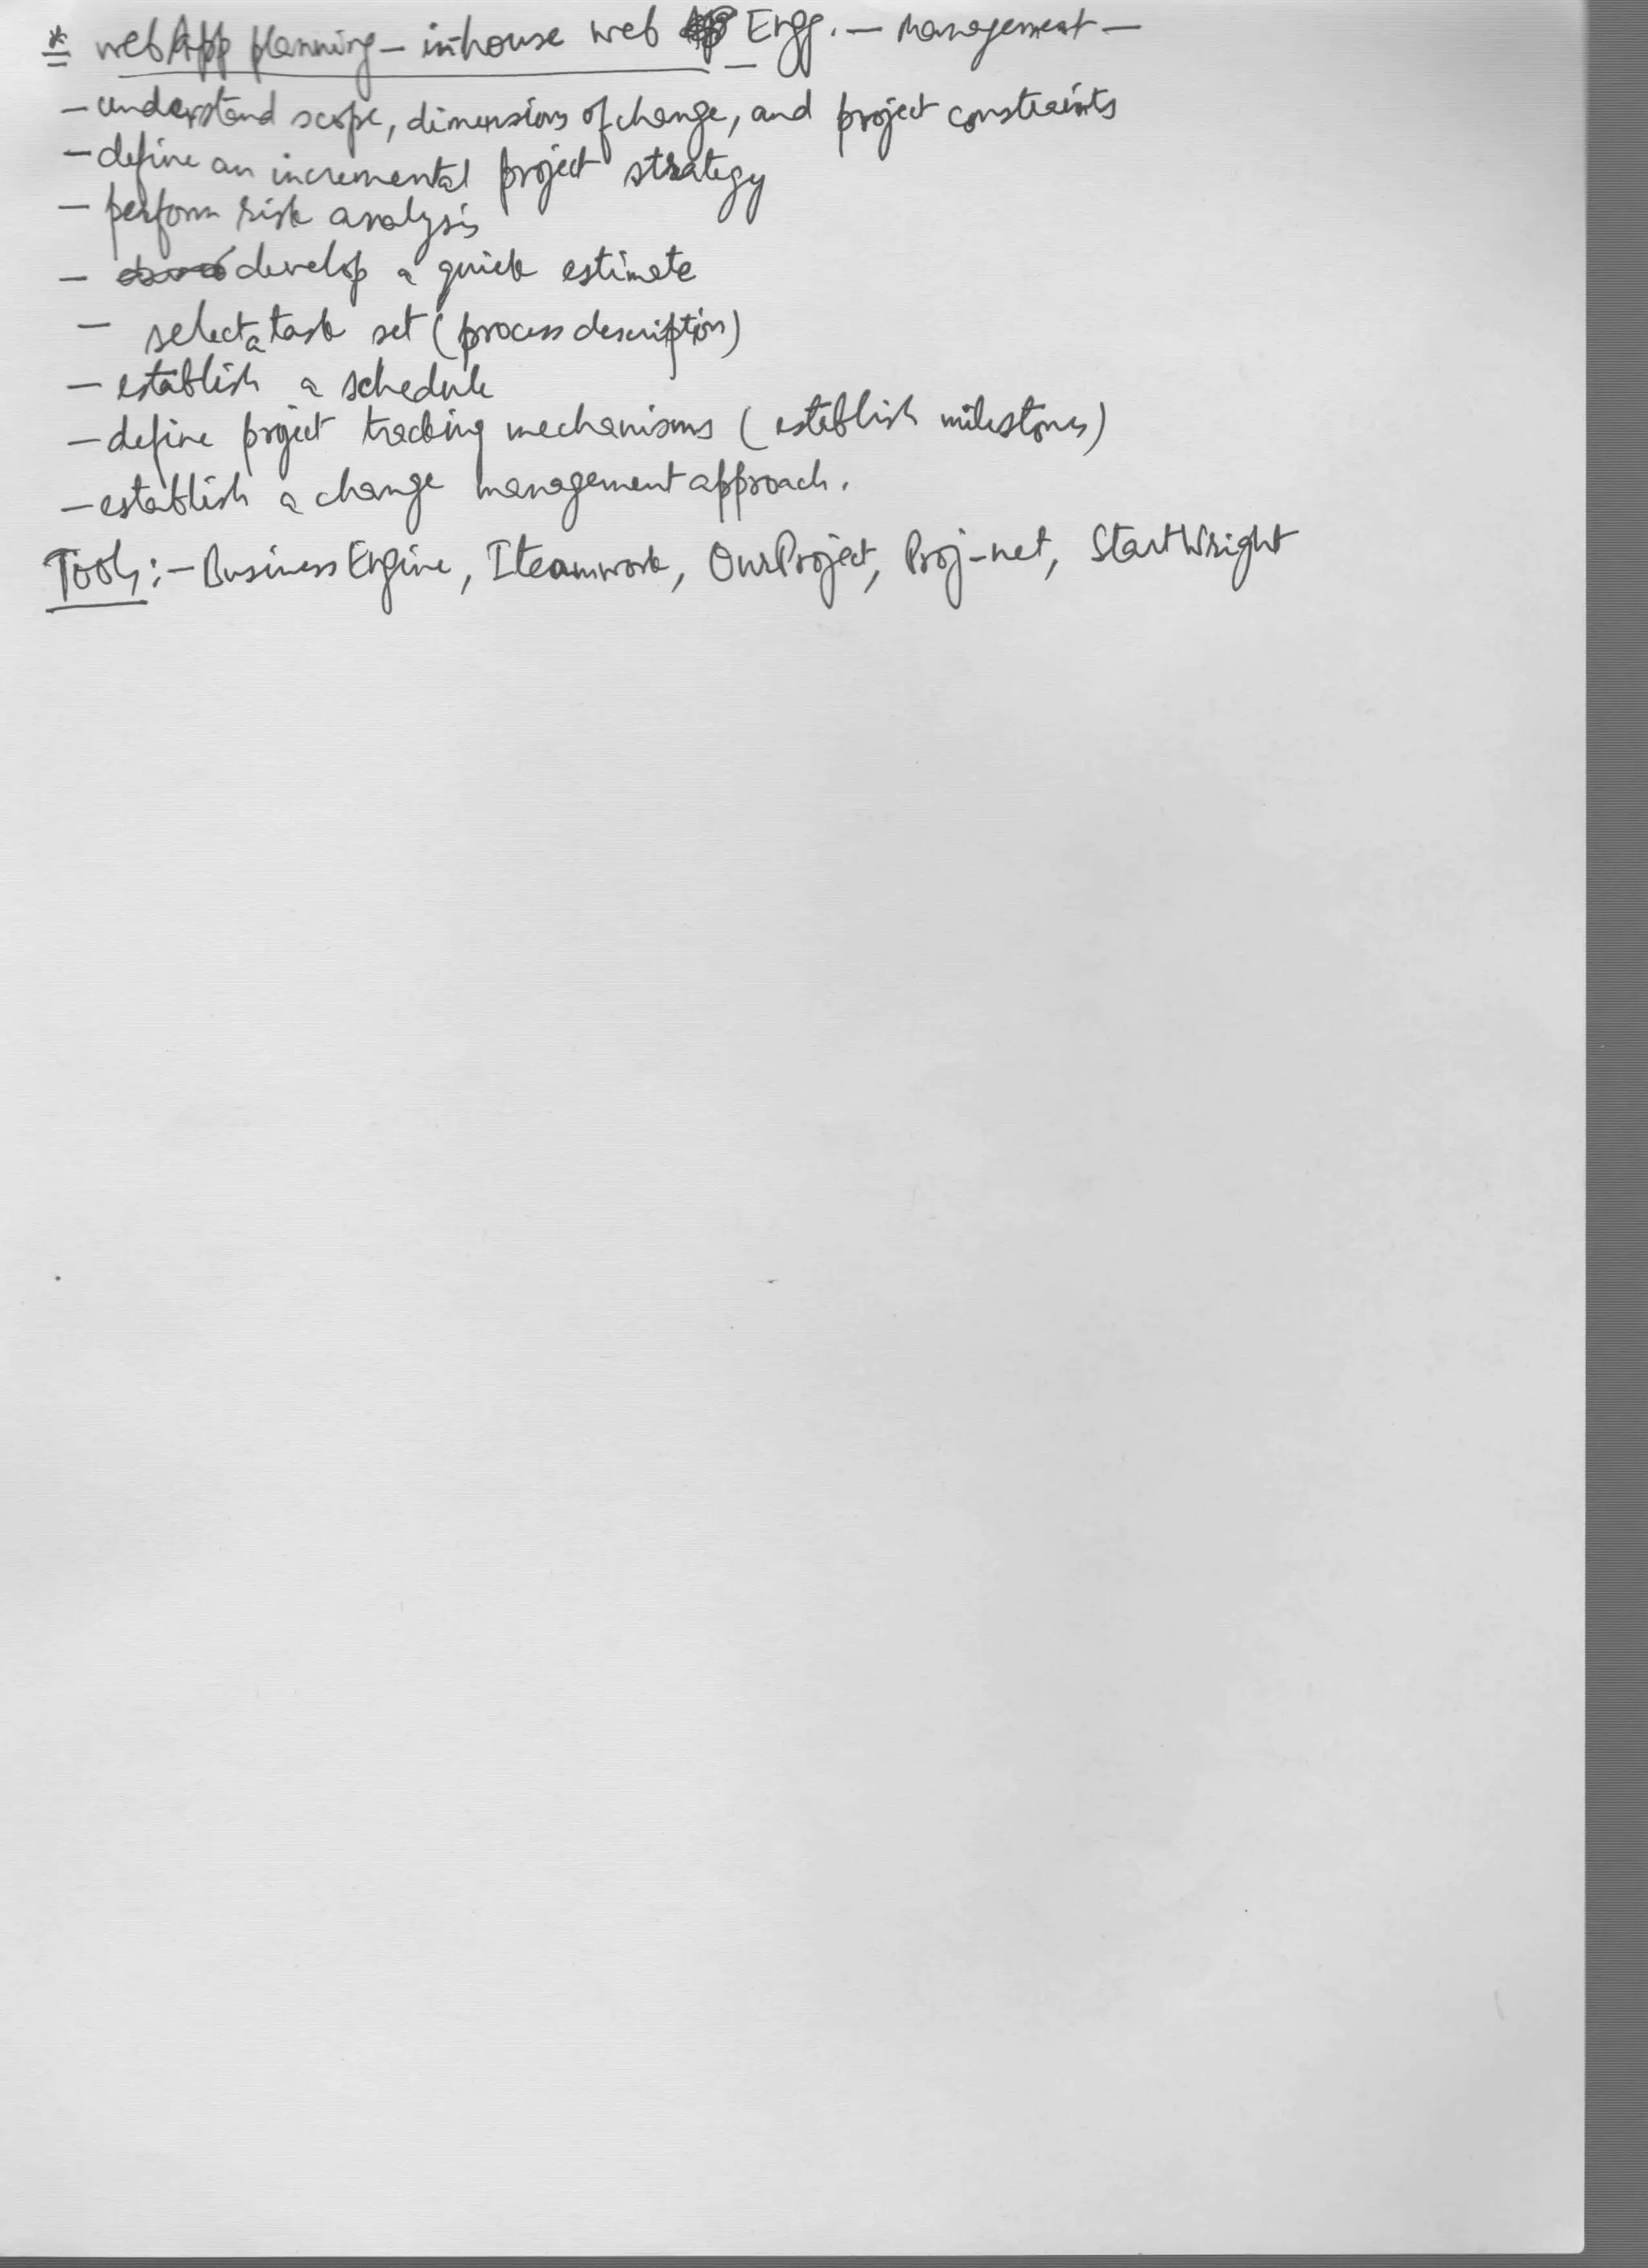 * WebApp planning - inhouse web Engg. - Management -
- understand scope, dimensions of change, and project constraints
- define an incremental project strategy
- perform risk analysis
- develop a quick estimate
- select a task set (process description)
- establish a schedule
- define project tracking mechanisms (establish milestones)
- establish a change management approach.
Tools:- Business Engine, Iteamwork, OurProject, Proj-net, StartWright